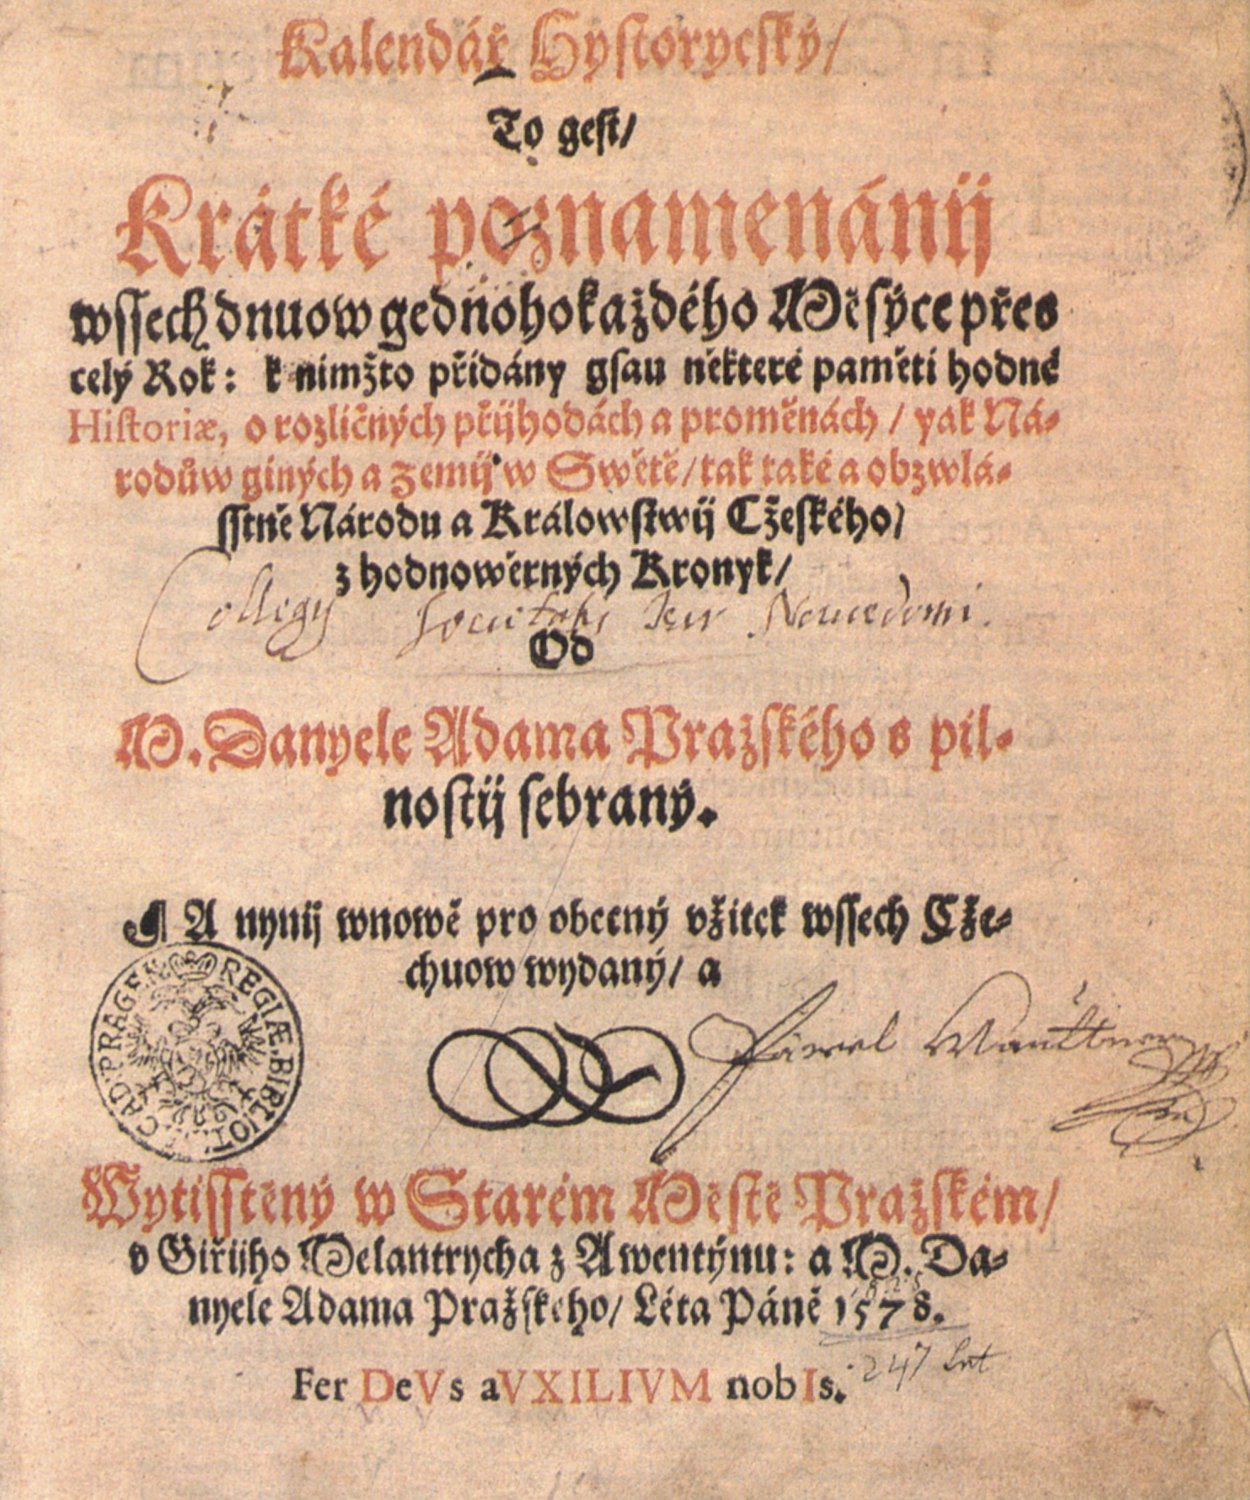 Kalendář Hystorycský/
To gest/
Krátké poznamenánij
wssech dnuow gednohokaždého Měsýce přes
celý Rok: k nimžto přidány gsau některé paměti hodné
Historiæ, o rozličných přijhodách a proměnách / yak Ná-
rodůw giných a zemij w Swětě/ tak také a obzwlá-
sstně Národu a Králowstwij Cžeského/
z hodnowěrných Kronyk/
Collegij Societatis Jesu
Od
M. Danyele Adama Pražského s pil-
nostij sebraný.
¶ A nynij wnowě pro obecný vžitek wssech Cže-
chuow wydaný/ a
CÆS. REGIÆ. BIBLIOT. ACAD. PRAGEN.
Pawel
Wytisstěný w Starém Městě Pražském/
v Giřijho Melantrycha z Awentýnu: a M. Da-
nyele Adama Pražského/ Léta Páně 1578.
247
Fer DeVs aVXILIVM nobIs.